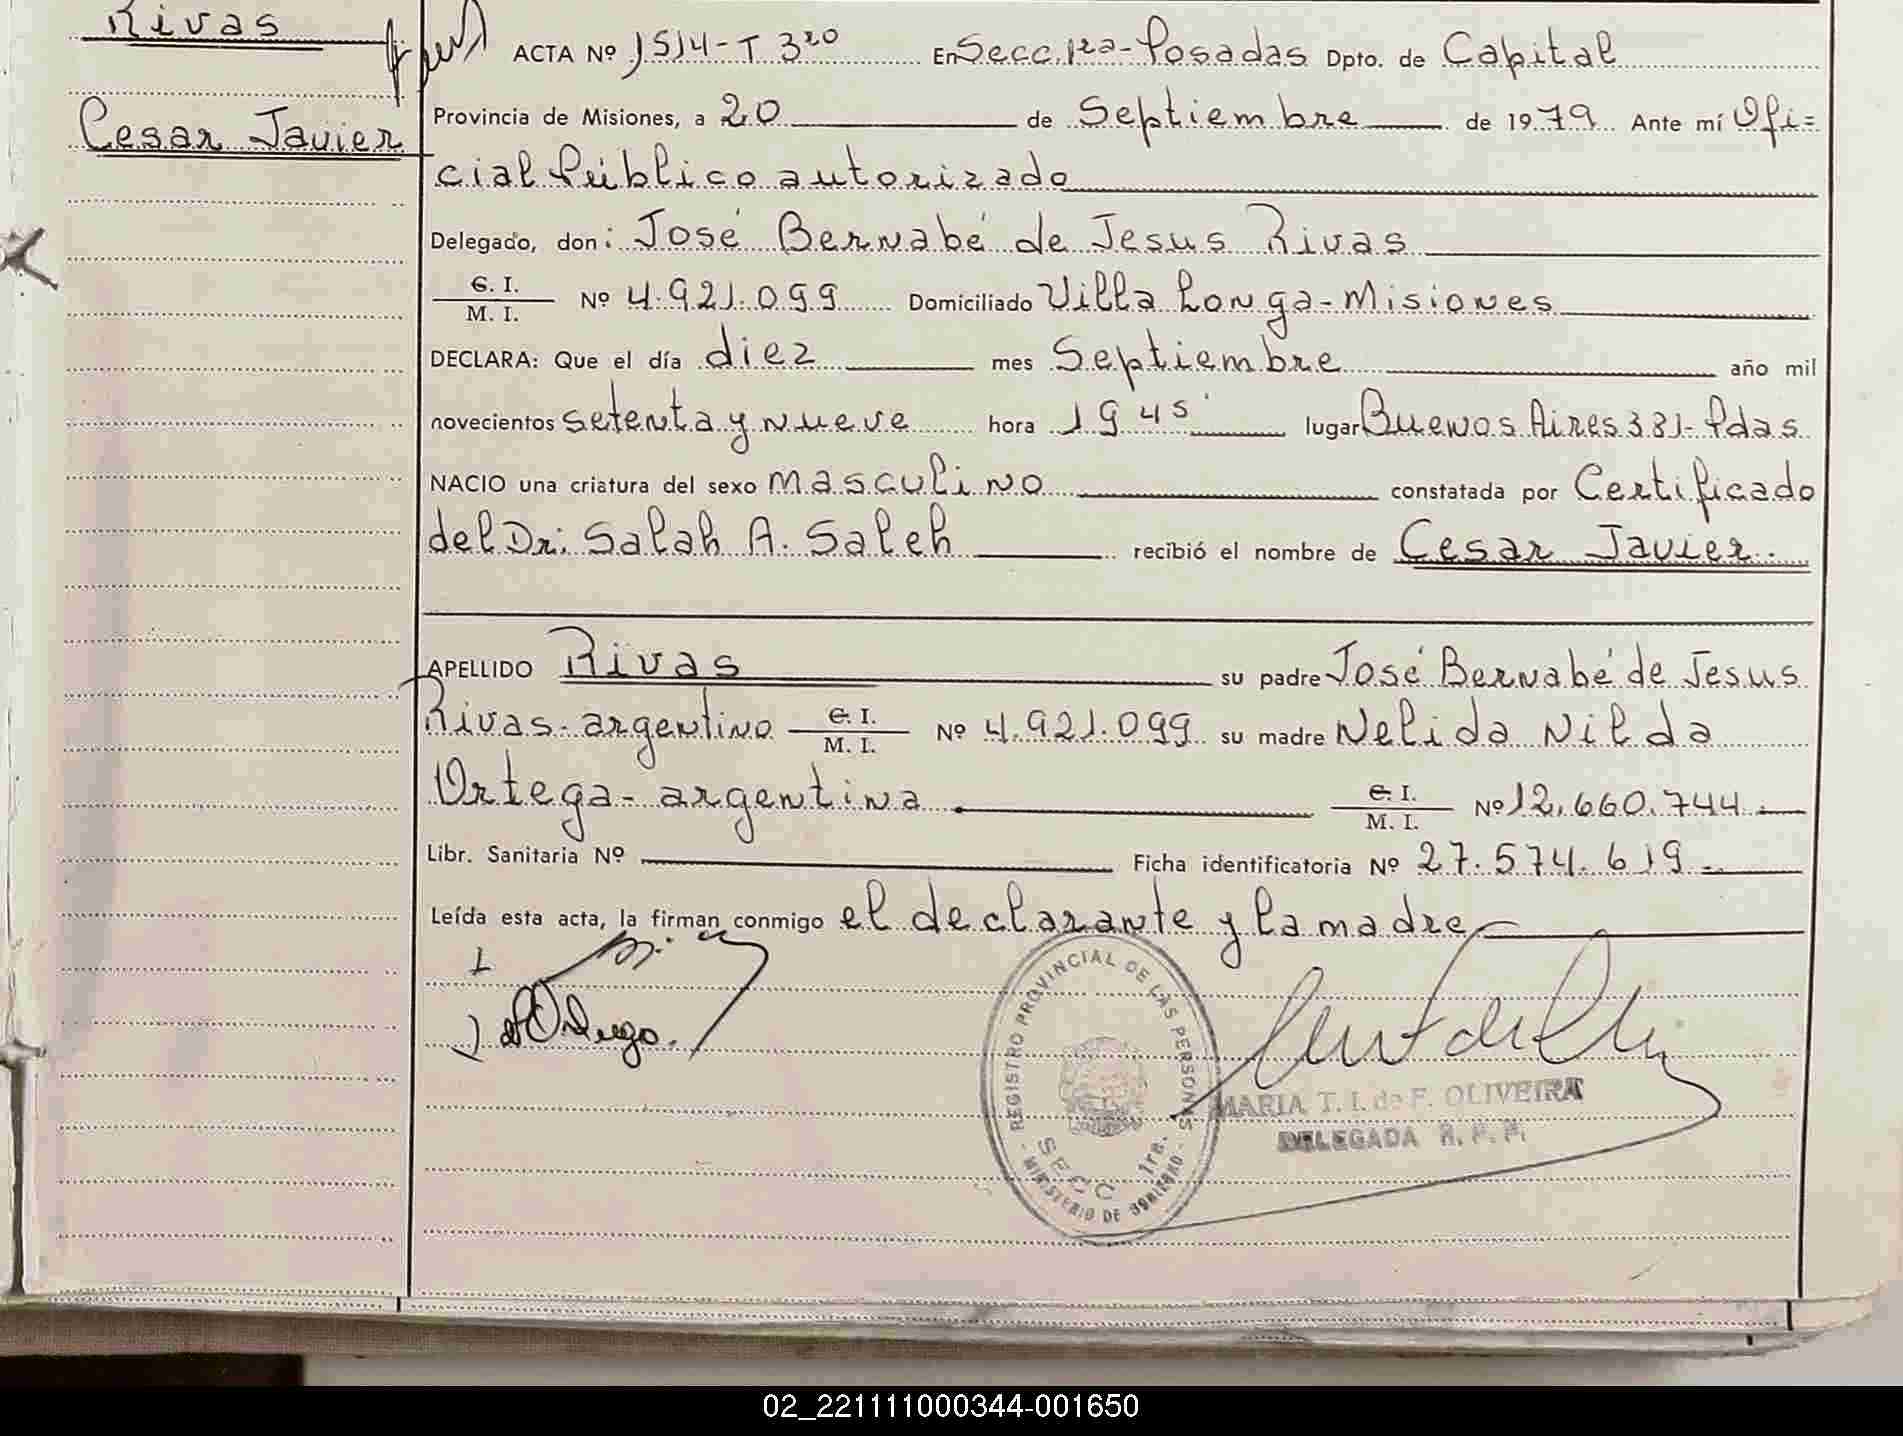 Rivas
Cesar Javier
ACTA Nº 1514-T 3ro En Secc. 1ra-Posadas Dpto. de Capital
Provincia de Misiones, a 20 de Septiembre de 1979 Ante mí Ofi=
cial Público autorizado
Delegado, don: José Bernabé de Jesus Rivas
C. I. / M. I. Nº 4.921.099 Domiciliado Villa Longa-Misiones
DECLARA: Que el día diez mes Septiembre año mil
novecientos setenta y nueve hora 19 45' lugar Buenos Aires 331-Pdas.
NACIO una criatura del sexo masculino constatada por Certificado
del Dr: Salah A. Saleh recibió el nombre de Cesar Javier.
APELLIDO Rivas su padre José Bernabé de Jesus
Rivas-argentino C. I. / M. I. Nº 4.921.099 su madre Nelida Nilda
Ortega-argentina C. I. / M. I. Nº 12.660.744.
Libr. Sanitaria Nº Ficha identificatoria Nº 27.574.619.
Leída esta acta, la firman conmigo el declarante y la madre
REGISTRO PROVINCIAL DE LAS PERSONAS
SECC. 1ra.
- MINISTERIO DE GOBIERNO -
MARIA T. I. de F. OLIVEIRA
DELEGADA R. P. P.
02_221111000344-001650